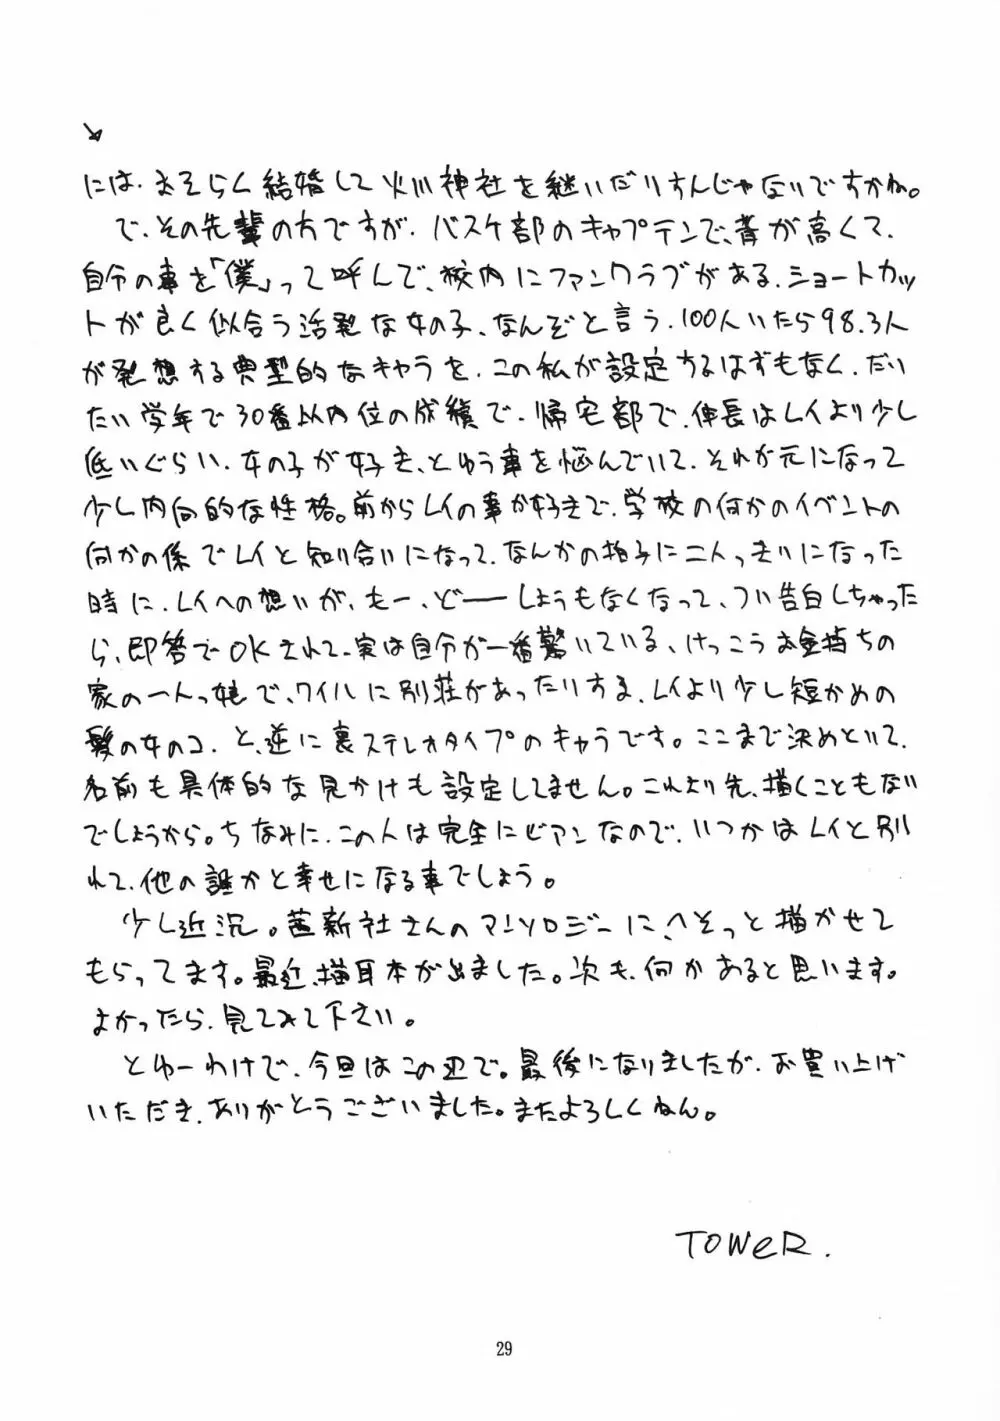 には、おそらく結婚して火川神社を継いだりすんじゃないですかね。
で、その先輩の方ですが、バスケ部のキャプテンで、背が高くて、
自分の事を「僕」って呼んで、校内にファンクラブがある、ショートカッ
トが良く似合う活発な女の子、なんぞと言う、100人いたら98.3人
が発想する典型的なキャラを、この私が設定するはずもなく、だい
たい学年で30番以内位の成績で、帰宅部で、伸長はレイより少し
低いぐらい、女の子が好き、とゆう事を悩んでいて、それが元になって
少し内向的な性格。前からレイの事が好きで、学校の何かのイベントの
何かの係でレイと知り合いになって、なんかの拍子に二人っきりになった
時に、レイへの想いが、もー、どーーしようもなくなって、つい告白しちゃった
ら、即答でOKされて、実は自分が一番驚いている、けっこうお金持ちの
家の一人っ娘で、ハワイに別荘があったりする、レイより少し短かめの
髪の女のコ、と、逆に裏ステレオタイプのキャラです。ここまで決めといて、
名前も具体的な見かけも設定してません。これより先、描くこともない
でしょうから。ちなみに、この人は完全にビアンなので、いつかはレイと別
れて、他の誰かと幸せになる事でしょう。
少し近況。茜新社さんのアンソロジーに、へそっと描かせて
もらってます。最近、猫耳本が出ました。次も、何かあると思います。
よかったら、見てみて下さい。
とゆーわけで、今回はこの辺で。最後になりましたが、お買い上げ
いただき、ありがとうございました。またよろしくねん。
TOWeR.
29